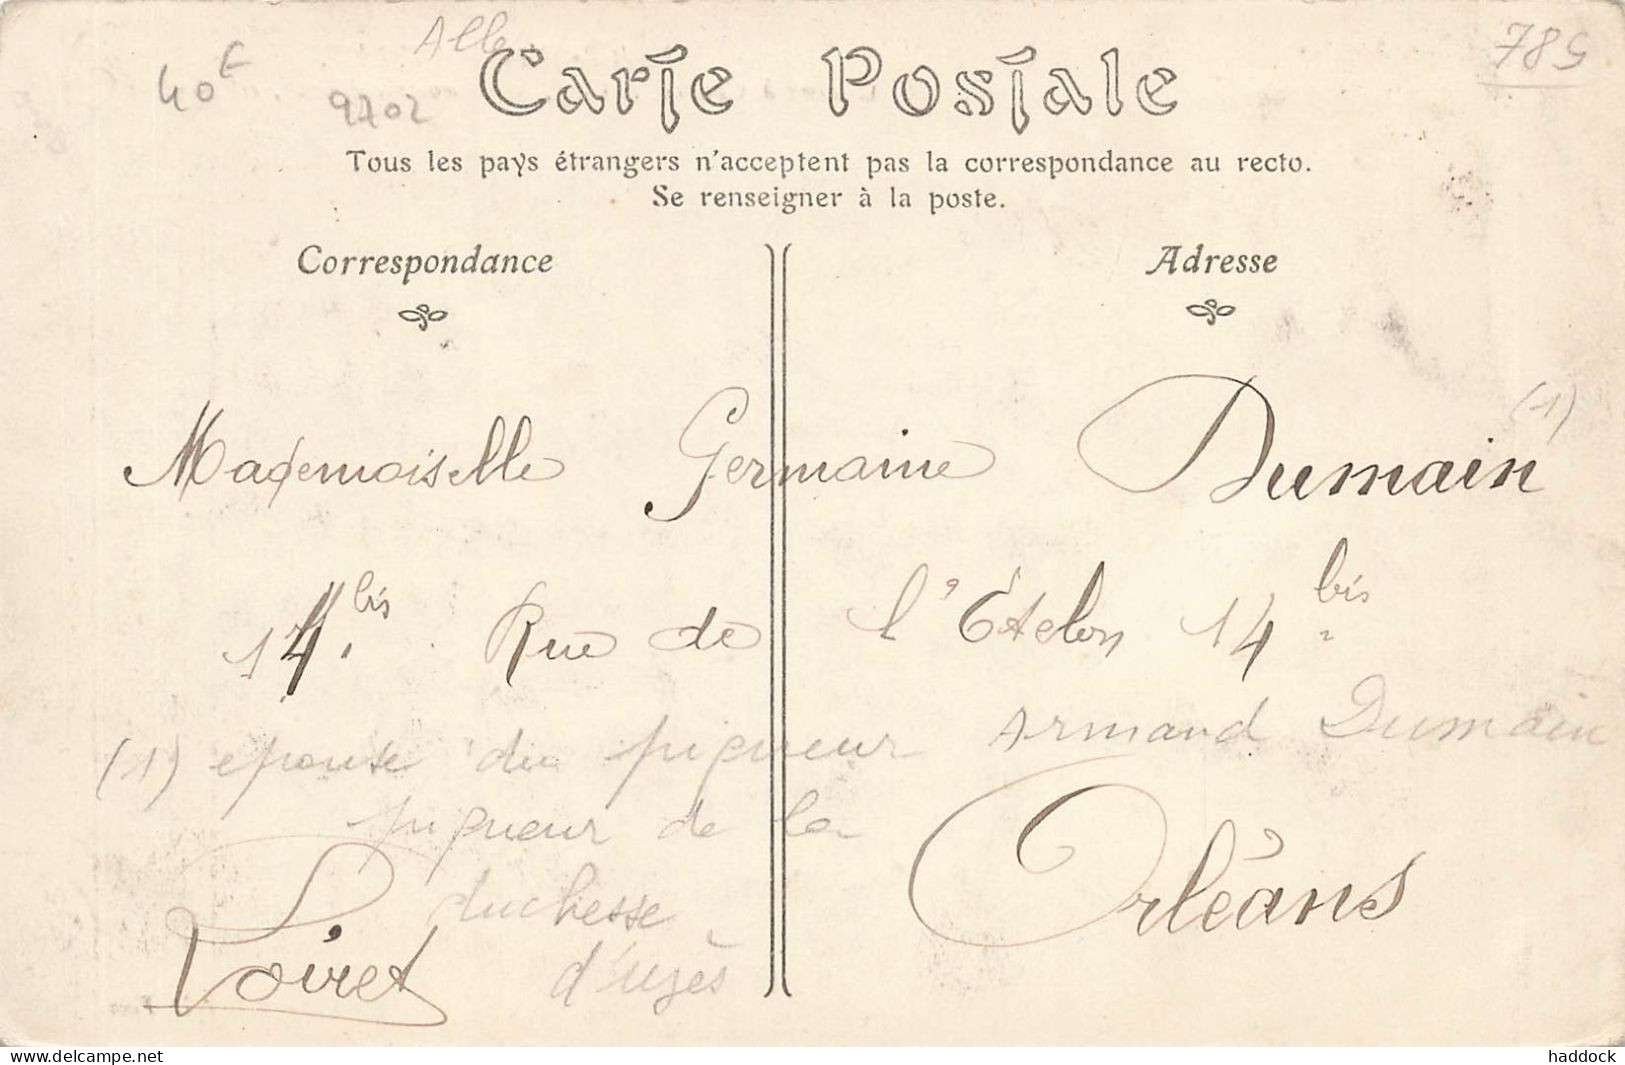 40€ Alle 785
9202
Carte Postale
Tous les pays étrangers n'acceptent pas la correspondance au recto.
Se renseigner à la poste.
Correspondance Adresse
Mademoiselle Germaine Dumain (1)
14 bis. Rue de l'Etelon 14 bis
(1) epouse du piqueur Armand Dumain
piqueur de la
duchesse
d'uzès
Loiret Orléans
www.delcampe.net haddock